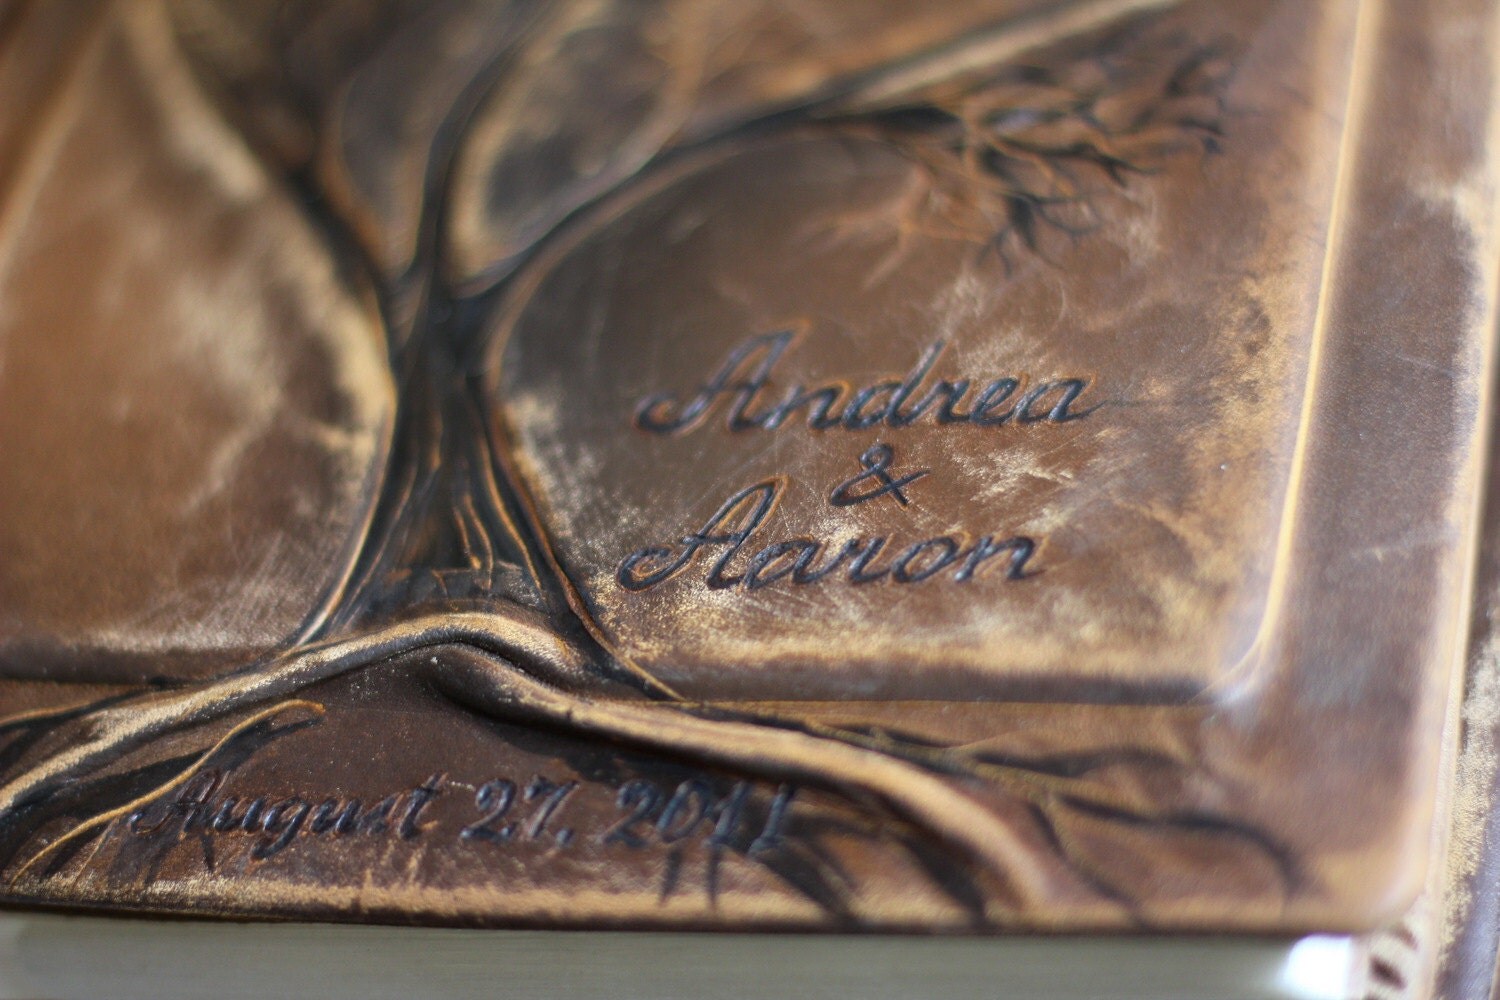 Andrea
&
Aaron
August 27, 2011